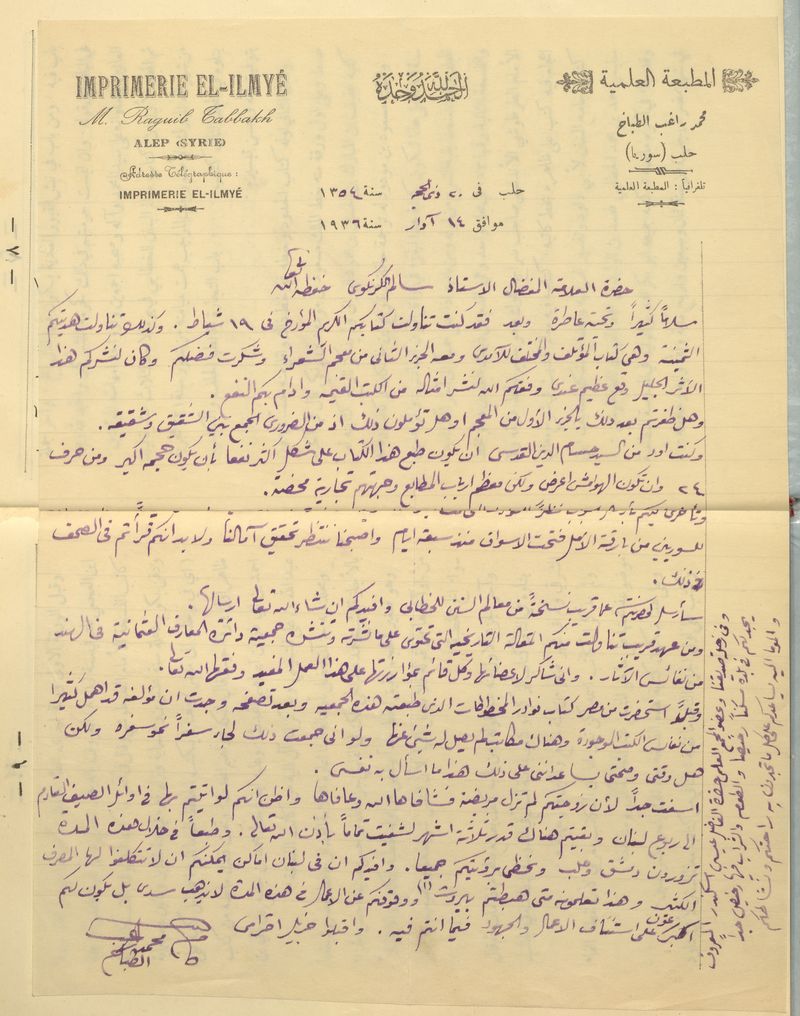 IMPRIMERIE EL-ILMYÉ
M. Raguib Tabbakh
ALEP (SYRIE)
Adresse Télégraphique :
IMPRIMERIE EL-ILMYÉ
الحمد لله وحده
المطبعة العلمية
محمد راغب الطباخ
حلب (سوريا)
تلغرافيا : المطبعة العلمية
حلب في ٢٠ ذي الحجة سنة ١٣٥٤
موافق ١٤ آذار سنة ١٩٣٦
حضرة العلامة المفضال الاستاذ سالم الكرنكوي حفظه الله تعالى
سلاماً كثيراً وتحية عاطرة وبعد فقد كنت تناولت كتابكم الكريم المؤرخ في ١٩ شباط . وكذلك تناولت هديتكم
الثمينة وهي كتاب المؤتلف والمختلف للآمدي ومعه الجزء الثاني من معجم الشعراء وشكرت فضلكم وكان لنشركم هذا
الأثر الجليل وقع عظيم عندي وفقكم الله لنشر امثاله من الكتب القيمة وادام بكم النفع .
وهل ظفرتم بعد ذلك بالجزء الأول من المعجم او هل تؤملون ذلك اذ من الضروري الجمع بين الشقيق وشقيقه .
وكنت اود من السيد حسام الدين القدسي ان يكون طبع هذا الكتاب على شكل اكثر نفعا بأن يكون حجمه اكبر ومن حرف
٢٤ وان تكون الهوامش اعرض ولكن معظم ارباب المطابع وجهتهم تجارية محضة .
للسوريين من بارقة الأمل فتحت الاسواق منذ سبعة ايام واصبحنا ننتظر تحقيق آمالنا ولا بد انكم قرأتم في الصحف
ذلك .
سأرسل لحضرتكم عما قريب نسخة من معالم السنن للخطابي وافيدكم ان شاء الله تعالى ارسالها .
ومن عهد قريب تناولت منكم المقالة التاريخية التي تحتوي على ما نشرته وتنشره جمعية دائرة المعارف العثمانية في الهند
من نفائس الآثار . واني شاكر لاعضائها وكل قائم بمؤازرتها على هذا العمل المفيد وفقها الله تعالى .
استحضرت من مصر كتاب نوادر المخطوطات الذي طبعته هذه الجمعية وبعد تصفحه وجدت ان مؤلفه قد اهمل كثيرا
من نفائس الكتب الموجودة وهناك مكاتب لم يصل له شيء عنها ولو اني جمعت ذلك لجاء سفراً نحو سفره ولكن
هل وقتي وصحتي يساعدانني على ذلك هذا ما اسأل به نفسي .
اسفت جداً لأن زوجتكم لم تزل مريضة فشافاها الله وعافاها واظن انكم لو اتيتم بها في اوائل الصيف القادم
الى ربوع لبنان وبقيتم هناك قدر ثلاثة اشهر لشفيت تماماً بأذن الله تعالى . وطبعاً في خلال هذه المدة
تزورون دمشق وحلب ونحظى برؤيتكم جميعا . وافيدكم ان في لبنان اماكن يمكنكم ان لا تتكلفوا لها المصرف
الكثير وهذا تعلمونه متى هبطتم بيروت (١) ووقوفكم عن الاعمال في هذه المدة لا يذهب سدى بل يكون لكم
اكبر عون على استئناف الاعمال والجهود فيما انتم فيه . واقبلوا جزيل احترامي
محمد راغب الطباخ